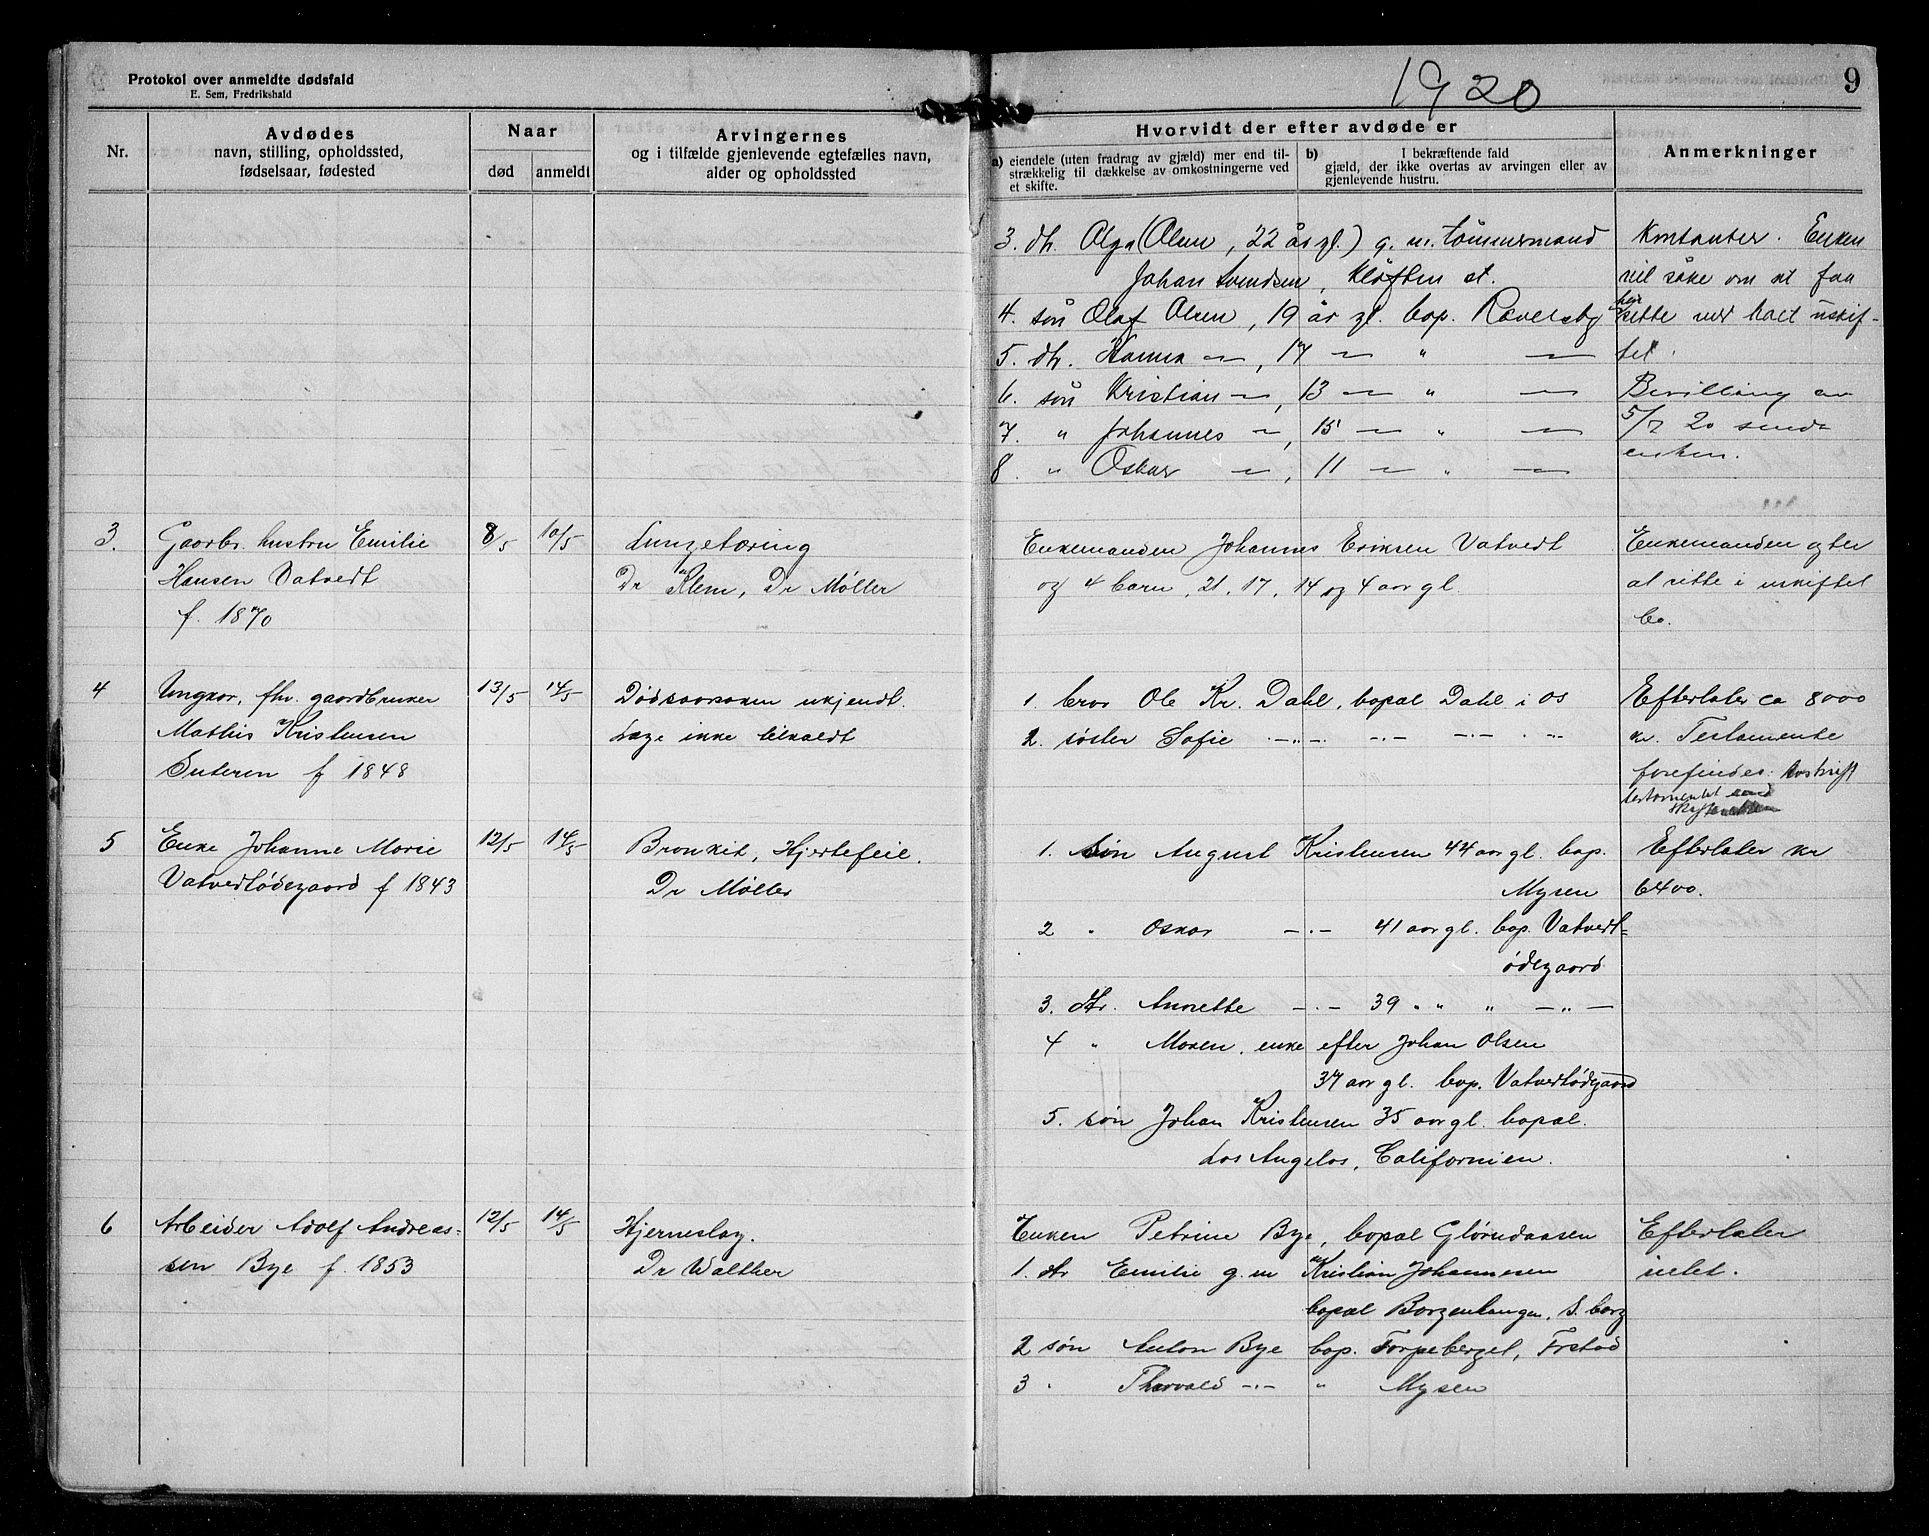 Protokol over anmeldte dødsfald
E. Sem, Fredrikshald
1920
9
Nr.
Avdødes
navn, stilling, opholdssted,
fødselsaar, fødested
Naar
død
anmeldt
Arvingernes
og i tilfælde gjenlevende egtefælles navn,
alder og opholdssted
Hvorvidt der efter avdøde er
a) eiendele (uten fradrag av gjæld) mer end til-
strækkelig til dækkelse av omkostningerne ved
et skifte.
b) I bekræftende fald
gjæld, der ikke overtas av arvingen eller av
gjenlevende hustru.
Anmerkninger
3. dtr. Olga (Olsen, 22 år gl.) g. m. tømmermand
Johan Svendsen, Kløften st.
4. søn Olaf Olsen, 19 år gl. bop. Rævelsby
5. dtr. Hanna — , 17 — " —
6. søn Kristian — , 13 — " —
7. " Johannes — , 15 — " —
8. " Oskar — , 11 — " —
Kontanter. Enken
vil søke om at faa
hen
sitte med boet uskif-
tet.
Bevilling av
5/7 20 sendt
enken.
3.
Gaarbr. hustru Emilie
Hansen Vatvedt
f. 1870
8/5
10/5
Lungetæring
Dr Klem, Dr Møller
Enkemanden Johannes Eriksen Vatvedt
og 4 barn, 21, 17, 14 og 4 aar gl.
Enkemanden agter
at sitte i uskiftet
bo.
4
Ungkar, fhv. gaardbruker
Mathis Kristensen
f 1848
13/5
14/5
Dødsaarsaken ukjendt.
Læge ikke tilkaldt
1. bror Ole Kr. Dahl, bopæl Dahl i Os
2. søster Sofie -"- -"- -"- "-
Efterlater ca 8000
kr. Testamente
forefindes. Avskrift
testamentet send
skifteretten
5
Enke Johanne Marie
Vatvedtødegaard f 1843
12/5
14/5
Bronkit, Hjertefeil.
Dr Møller
1. søn August Kristensen 44 aar gl. bop.
Mysen
2 " Oskar -"- 41 aar gl. bop. Vatvedt=
ødegaard
3. dtr. Annette -"- 39 " " " -"-
4 " Maren, enke efter Johan Olsen
37 aar gl. bop. Vatvedtødegaard
5. søn Johan Kristensen 35 aar gl. bopæl.
Los Angelos, Californien.
Efterlater kr
6400.
6
Arbeider Adolf Andreas-
sen Bye f. 1853
12/5
14/5
Hjerneslag.
Dr Walther
Enken Petrine Bye, bopæl Glørudaasen
1. dtr Emilie g. m Kristian Johannesen
bopæl Borgenhaugen, S. borg
2 søn Anton Bye bop. Torpeberget, Frstad
3 " Thorvald -"- " Mysen
Efterlater
intet.